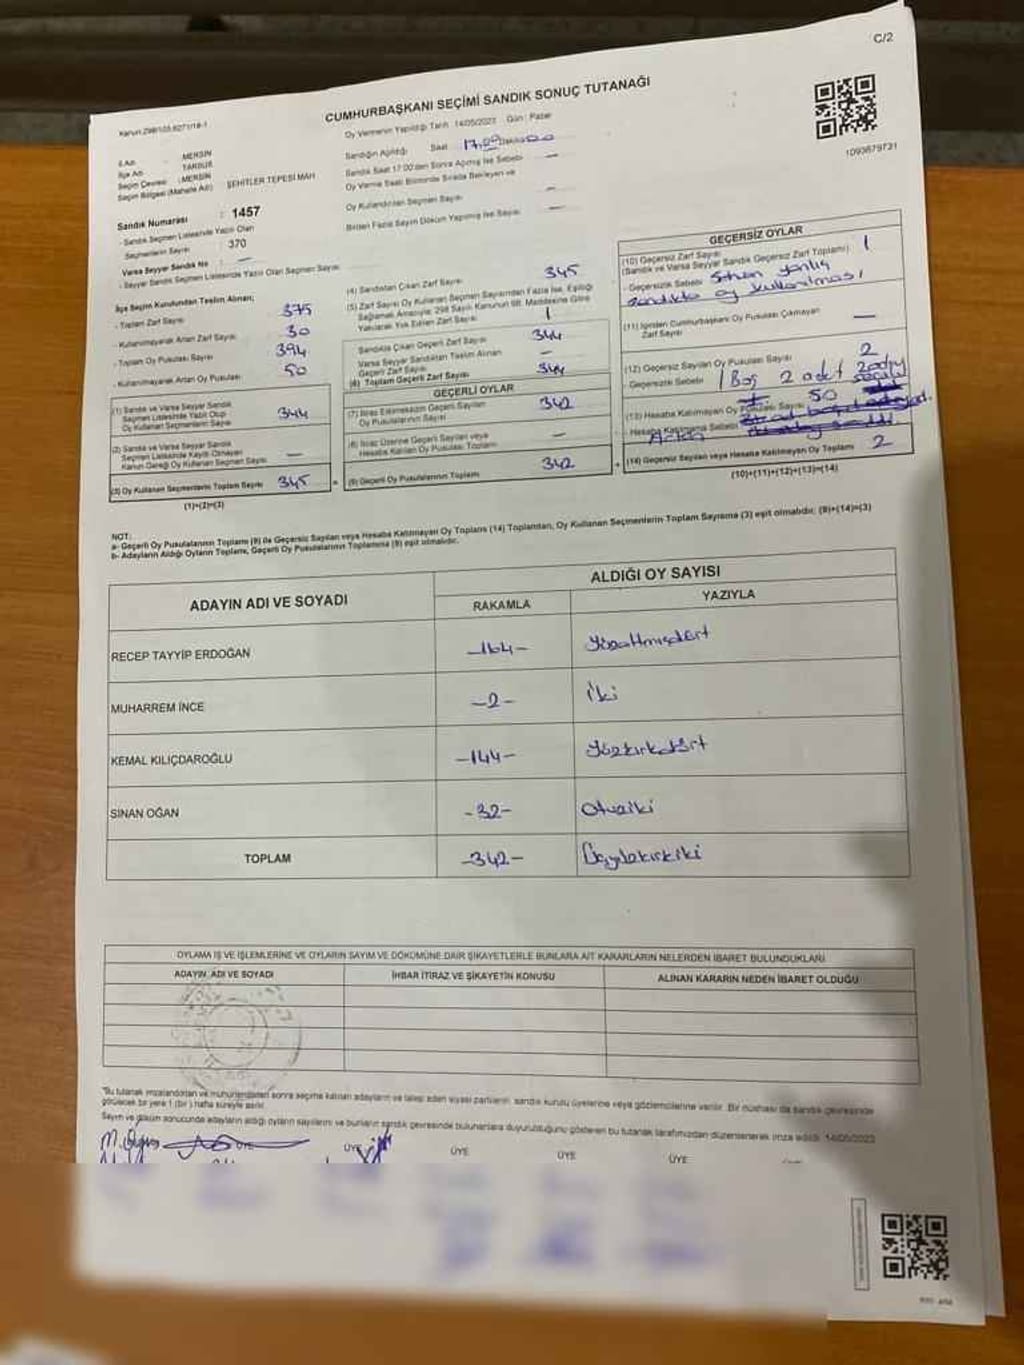 C/2
CUMHURBAŞKANI SEÇİMİ SANDIK SONUÇ TUTANAĞI
Kanun:298/103,6271/18-1
Oy Vermenin Yapıldığı Tarih : 14/05/2023 Gün : Pazar
Sandığın Açıldığı Saat 17.00
Sandık Saat 17:00'den Sonra Açılmış İse Sebebi —
Oy Verme Saati Bitiminde Sırada Bekleyen ve
Oy Kullandırılan Seçmen Sayısı —
Birden Fazla Sayım Döküm Yapılmış İse Sayısı —
1093679731
İl Adı : MERSİN
İlçe Adı : TARSUS
Seçim Çevresi : MERSİN
Seçim Bölgesi (Mahalle Adı) ŞEHİTLER TEPESİ MAH
Sandık Numarası : 1457
- Sandık Seçmen Listesinde Yazılı Olan
Seçmenlerin Sayısı : 370
Varsa Seyyar Sandık No : —
- Seyyar Sandık Seçmen Listesinde Yazılı Olan Seçmen Sayısı
İlçe Seçim Kurulundan Teslim Alınan;
- Toplam Zarf Sayısı 375
- Kullanılmayarak Artan Zarf Sayısı 30
- Toplam Oy Pusulası Sayısı 394
- Kullanılmayarak Artan Oy Pusulası 50
(1) Sandık ve Varsa Seyyar Sandık
Seçmen Listesinde Yazılı Olup
Oy Kullanan Seçmenlerin Sayısı 344
(2) Sandık ve Varsa Seyyar Sandık
Seçmen Listesinde Kayıtlı Olmayan
Kanun Gereği Oy Kullanan Seçmen Sayısı —
(3) Oy Kullanan Seçmenlerin Toplam Sayısı 345
(1)+(2)=(3)
(4) Sandıktan Çıkan Zarf Sayısı 345
(5) Zarf Sayısı Oy Kullanan Seçmen Sayısından Fazla İse, Eşitliği
Sağlamak Amacıyla; 298 Sayılı Kanunun 98. Maddesine Göre
Yakılarak Yok Edilen Zarf Sayısı 1
Sandıkta Çıkan Geçerli Zarf Sayısı 344
Varsa Seyyar Sandıktan Teslim Alınan
Geçerli Zarf Sayısı —
(6) Toplam Geçerli Zarf Sayısı 344
GEÇERLİ OYLAR
(7) İtiraz Edilmeksizin Geçerli Sayılan
Oy Pusulalarının Sayısı 342
(8) İtiraz Üzerine Geçerli Sayılan veya
Hesaba Katılan Oy Pusulası Toplamı —
(9) Geçerli Oy Pusulalarının Toplamı 342
GEÇERSİZ OYLAR
(10) Geçersiz Zarf Sayısı
(Sandık ve Varsa Seyyar Sandık Geçersiz Zarf Toplamı) 1
Geçersizlik Sebebi yanlış
sandıkta oy kullanılması
(11) İçinden Cumhurbaşkanı Oy Pusulası Çıkmayan
Zarf Sayısı —
(12) Geçersiz Sayılan Oy Pusulası Sayısı 2
Geçersizlik Sebebi 1 Boş 2 adet
(13) Hesaba Katılmayan Oy Pusulası Sayısı 50
Hesaba Katılmama Sebebi
Artan
(14) Geçersiz Sayılan veya Hesaba Katılmayan Oy Toplamı 2
(10)+(11)+(12)+(13)=(14)
NOT:
a- Geçerli Oy Pusulalarının Toplamı (9) ile Geçersiz Sayılan veya Hesaba Katılmayan Oy Toplamı (14) Toplamları, Oy Kullanan Seçmenlerin Toplam Sayısına (3) eşit olmalıdır, (9)+(14)=(3)
b- Adayların Aldığı Oyların Toplamı, Geçerli Oy Pusulalarının Toplamına (9) eşit olmalıdır.
ADAYIN ADI VE SOYADI ALDIĞI OY SAYISI
RAKAMLA YAZIYLA
RECEP TAYYİP ERDOĞAN -164- Yüzaltmışdört
MUHARREM İNCE -2- İki
KEMAL KILIÇDAROĞLU -144- Yüzkırkdört
SİNAN OĞAN -32- Otuziki
TOPLAM -342- Üçyüzkırkiki
OYLAMA İŞ VE İŞLEMLERİNE VE OYLARIN SAYIM VE DÖKÜMÜNE DAİR ŞİKAYETLERLE BUNLARA AİT KARARLARIN NELERDEN İBARET BULUNDUKLARI
ADAYIN ADI VE SOYADI İHBAR İTİRAZ VE ŞİKAYETİN KONUSU ALINAN KARARIN NEDEN İBARET OLDUĞU
"Bu tutanak imzalandıktan ve mühürlendikten sonra seçime katılan adayların ve talep eden siyasi partilerin, sandık kurulu üyelerine veya gözlemcilerine verilir. Bir nüshası da sandık çevresinde
görülecek bir yere 1 (bir) hafta süreyle asılır.
Sayım ve döküm sonucunda adayların aldığı oyların sayılarını ve bunların sandık çevresinde bulunanlara duyurulduğunu gösteren bu tutanak tarafımızdan düzenlenerek imza edildi. 14/05/2023
ÜYE ÜYE ÜYE ÜYE ÜYE